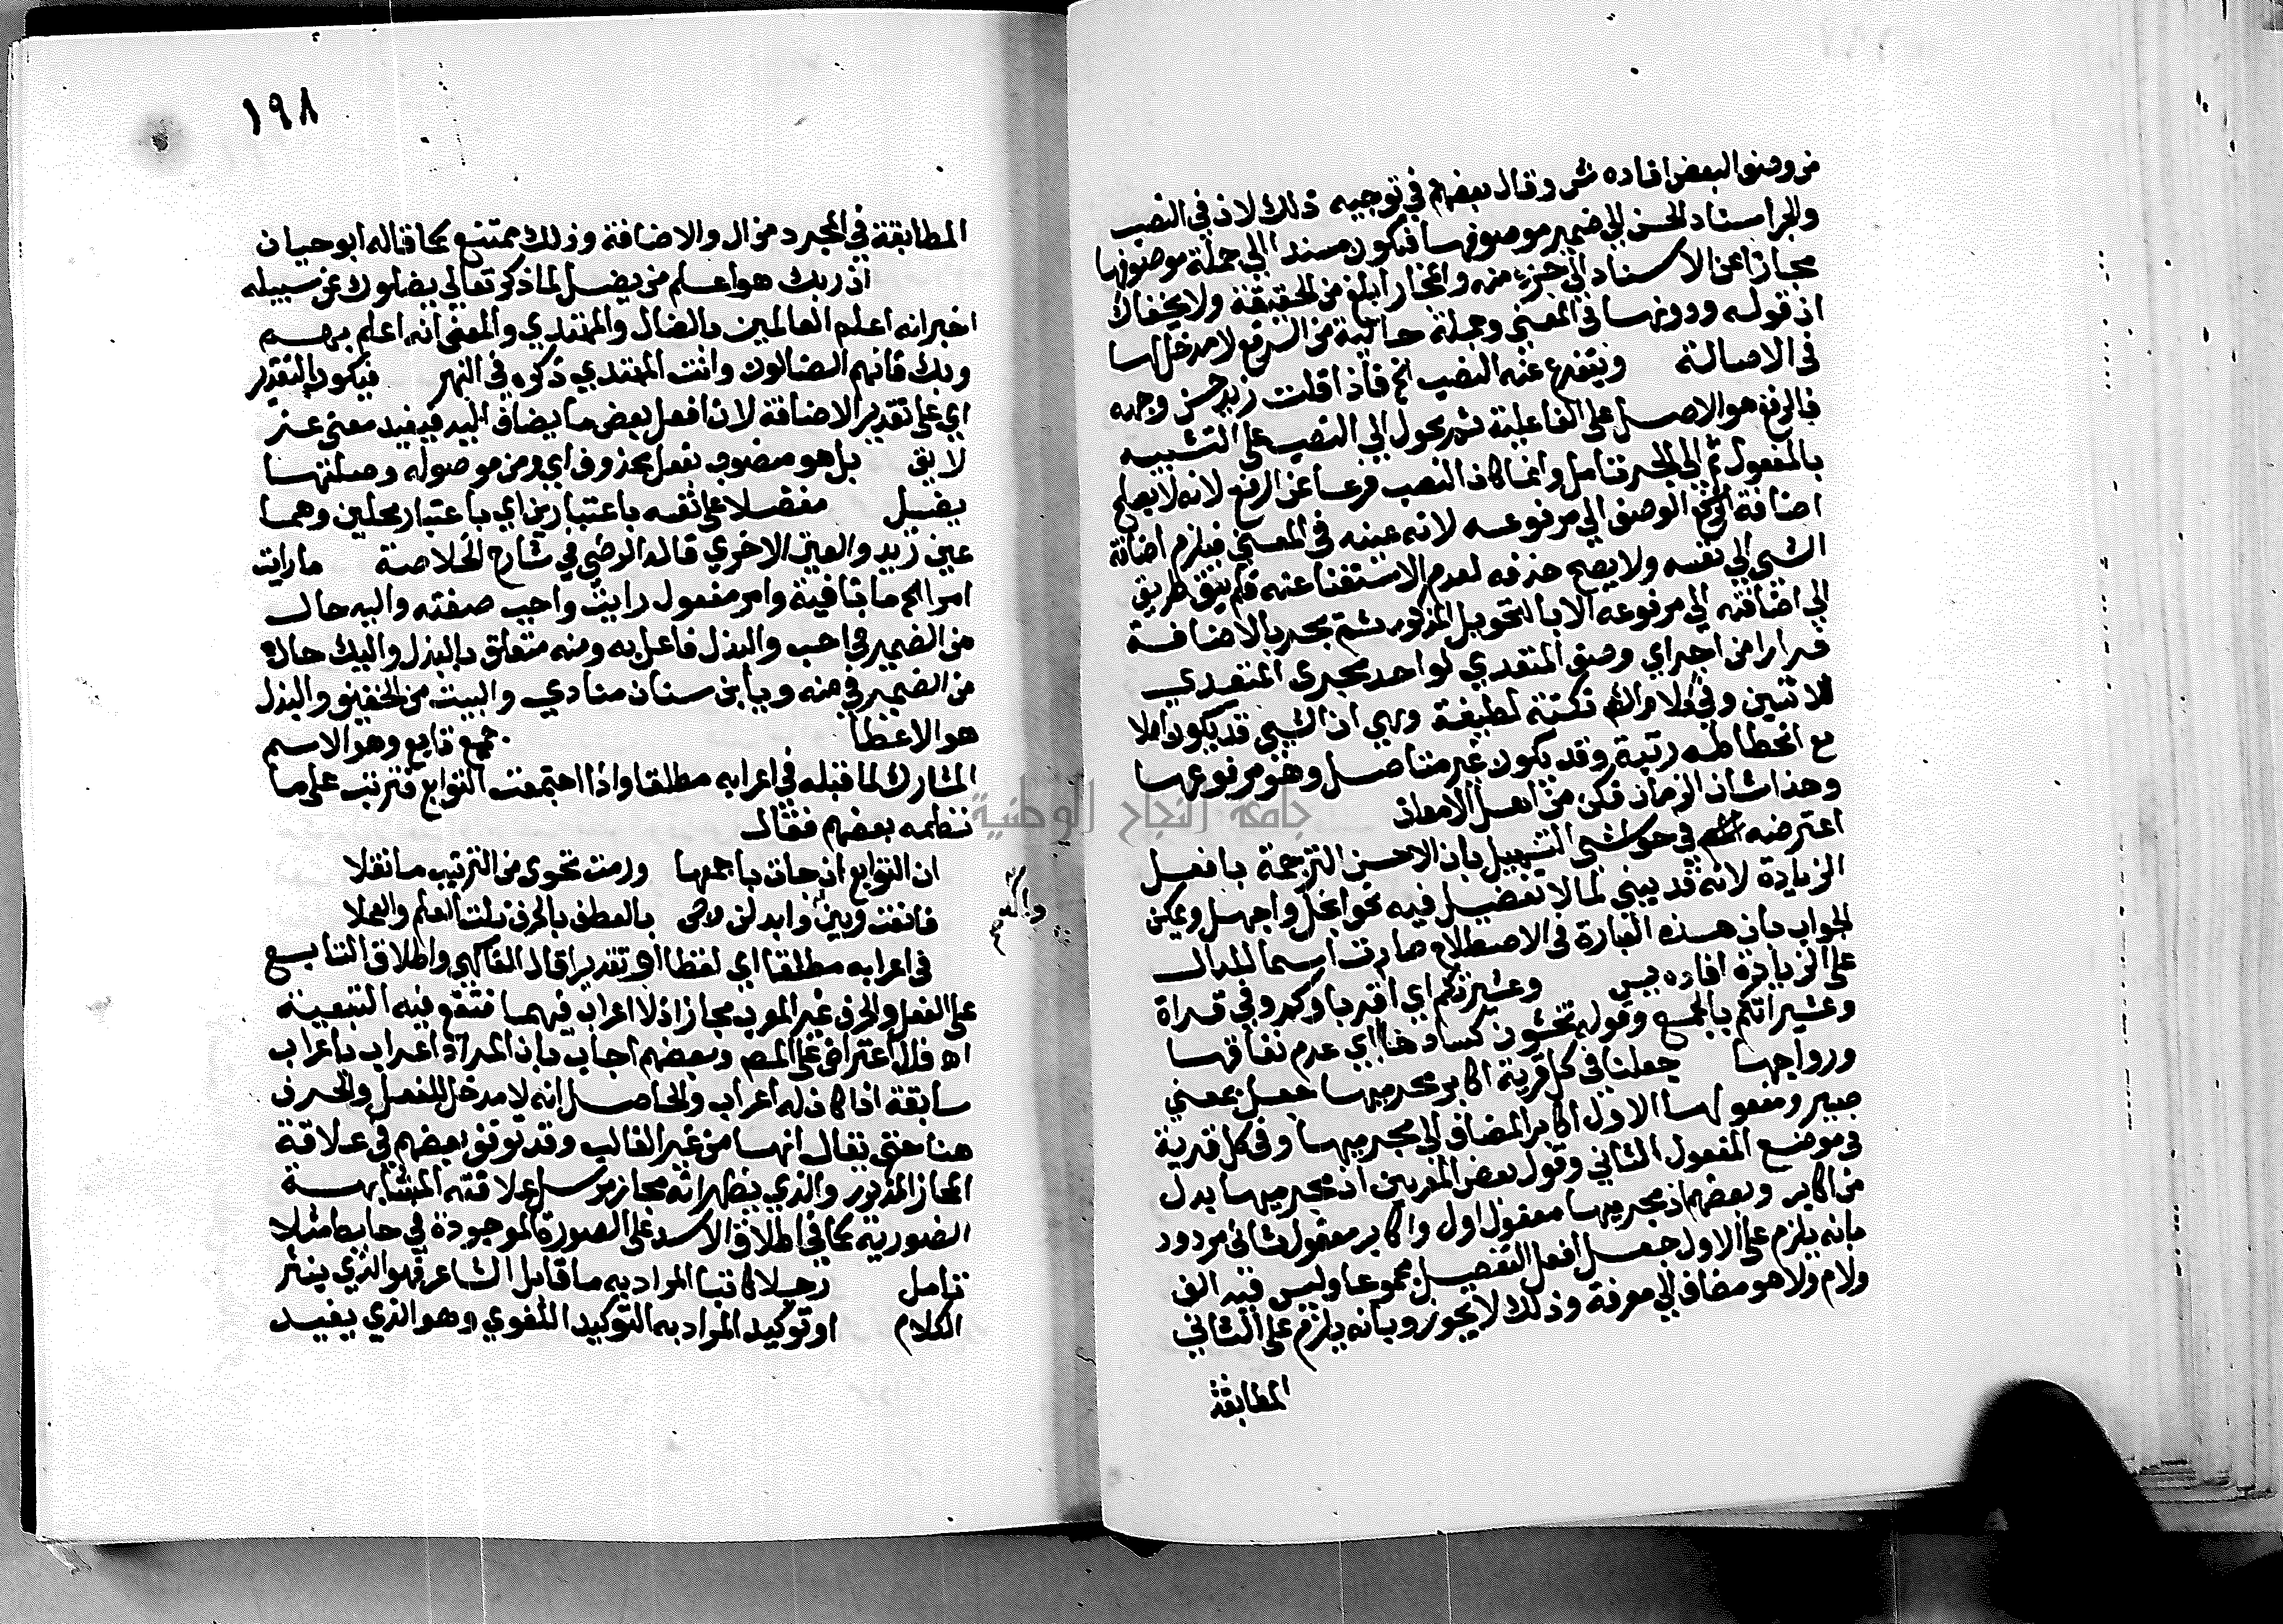 من وصفوا البعض افاده ش وقال بعضهم في توجيه ذلك لان في النصب
والجر اسناد الحسن الي ضمير موصوفها فيكون مسندا الي جملة موصوفها
مجازا عن الاسناد الي جزء منه والمجاز ابلغ من الحقيقة ولا يخفاك
ان قوله ودونها في المعني وجملة حالية من الرفع لا مدخل لها
في الاصالة ويتفرع عنه النصب الخ فاذا قلت زيد حسن وجهه
فالرفع هو الاصل علي الفاعلية ثم يحول الي النصب علي التشبيه
بالمفعول ثم الي الجر تنامل وانما كان النصب فرعا عن الرفع لانه لا يصلح
اضافة الوصف الي مرفوعه لانه عينه في المعني فيلزم اضافة
الشي الي نفسه ولا يصح حذفه لعدم الاستغنا عنه فلم يبق طريق
الي اضافته الي مرفوعه الا بالتحويل المذكور ثم يجر بالاضافة
فرارا من اجراي وصف المتعدي لواحد مجري المتعدي
للاثنين وفي كلام نكتة لطيفة وهي ان الشي قد يكون اصلا
مع انحطاطه رتبة وقد يكون غير متاصل وهو مرفوعها
وهذا شان الزمان فكن من اهل الامعان
اعترضه في حواشي التسهيل بان الاحسن الترجمة بافعل
الزيادة لانه قد يبني لما لا تفضيل فيه نحو ابخل واجهل ويمكن
الجواب بان هذه العبارة في الاصطلاح صارت اسما للدال
علي الزيادة افاده يس وعشيرتكم اي اقرباوكم وفي قراة
وعشيراتكم بالجمع وقوله تخشون كسادها اي عدم نفاقها
ورواجها جعلنا في كل قرية اكابر مجرميها جعل بمعني
صير ومفعولها الاول اكابر المضاف الي مجرميها وفي كل قرية
في موضع المفعول الثاني وقول بعض المعربين ان مجرميها بدل
من اكابر وبعضهم ان مجرميها مفعول اول واكابر مفعول ثاني مردود
بانه يلزم علي الاول جعل افعل التفضيل مجموعا وليس فيه الف
ولام ولا هو مضاف الي معرفة وذلك لا يجوز وبانه يلزم علي الثاني
المطابقة
١٩٨
المطابقة في المجرد من ال والاضافة وذلك ممتنع كما قاله ابو حيان
ان ربك هو اعلم من يضل لما ذكر تعالي يضلوك عن سبيله
اخبر انه اعلم العالمين بالضال والمهتدي والمعني انه اعلم بهم
وبك فانهم الضالون وانت المهتدي ذكره في النهر فيكون التقدير
اي علي تقدير الاضافة لان افعل بعض ما يضاف اليه فيفيد معني غير
لايق بل هو منصوب بفعل محذوف اي ومن موصوله وصلتها
يضل مفضلا علي نفسه باعتبارين اي باعتبار محلين وهما
عين زيد والعين الاخري قاله الرضي في شارح الخلاصة ما رايت
امرا الخ ما نافية وامر مفعول رايت واحب صفته واليه حال
من الضمير في احب والبذل فاعل به ومنه متعلق بالبذل واليك حال
من الضمير في منه ويا بن سنان منادي والبيت من الخفيف والبذل
هو الاعطا جمع تابع وهو الاسم
المشارك لما قبله في اعرابه مطلقا واذا اجتمعت التوابع فترتب علي ما
نظمه بعضهم فقال
ان التوابع ان جات باجمعها ورمت تحوي من الترتيب ما نقلا
فانعت وبين وابدلن بالعطف بالحرف نلت العلم والعملا
في اعرابه مطلقا اي لفظا او تقديرا قال الفاكهي واطلاق التابع
علي الفعل والحرف غير المعرب مجاز اذ لا اعراب فيهما فتقع فيه التبعية
اه فلا اعتراض علي المص وبعضهم اجاب بان المراد اعراب باعراب
سابقة اذا كان له اعراب والحاصل انه لا مدخل للفعل والحرف
هنا حتي يقال انها من غير الغالب وقد توقف بعضهم في علاقة
المجاز المذكور والذي يظهر انه مجاز مرسل علاقته المشابهة
الصورية كما في اطلاق الاسد علي الصورة الموجودة في حايط مثلا
تنامل رجلا كاتبا المراد به ما قابل الشاعر فهو الذي ينثر
الكلام او توكيد المراد به التوكيد اللغوي وهو الذي يفيد
جامعة النجاح الوطنية